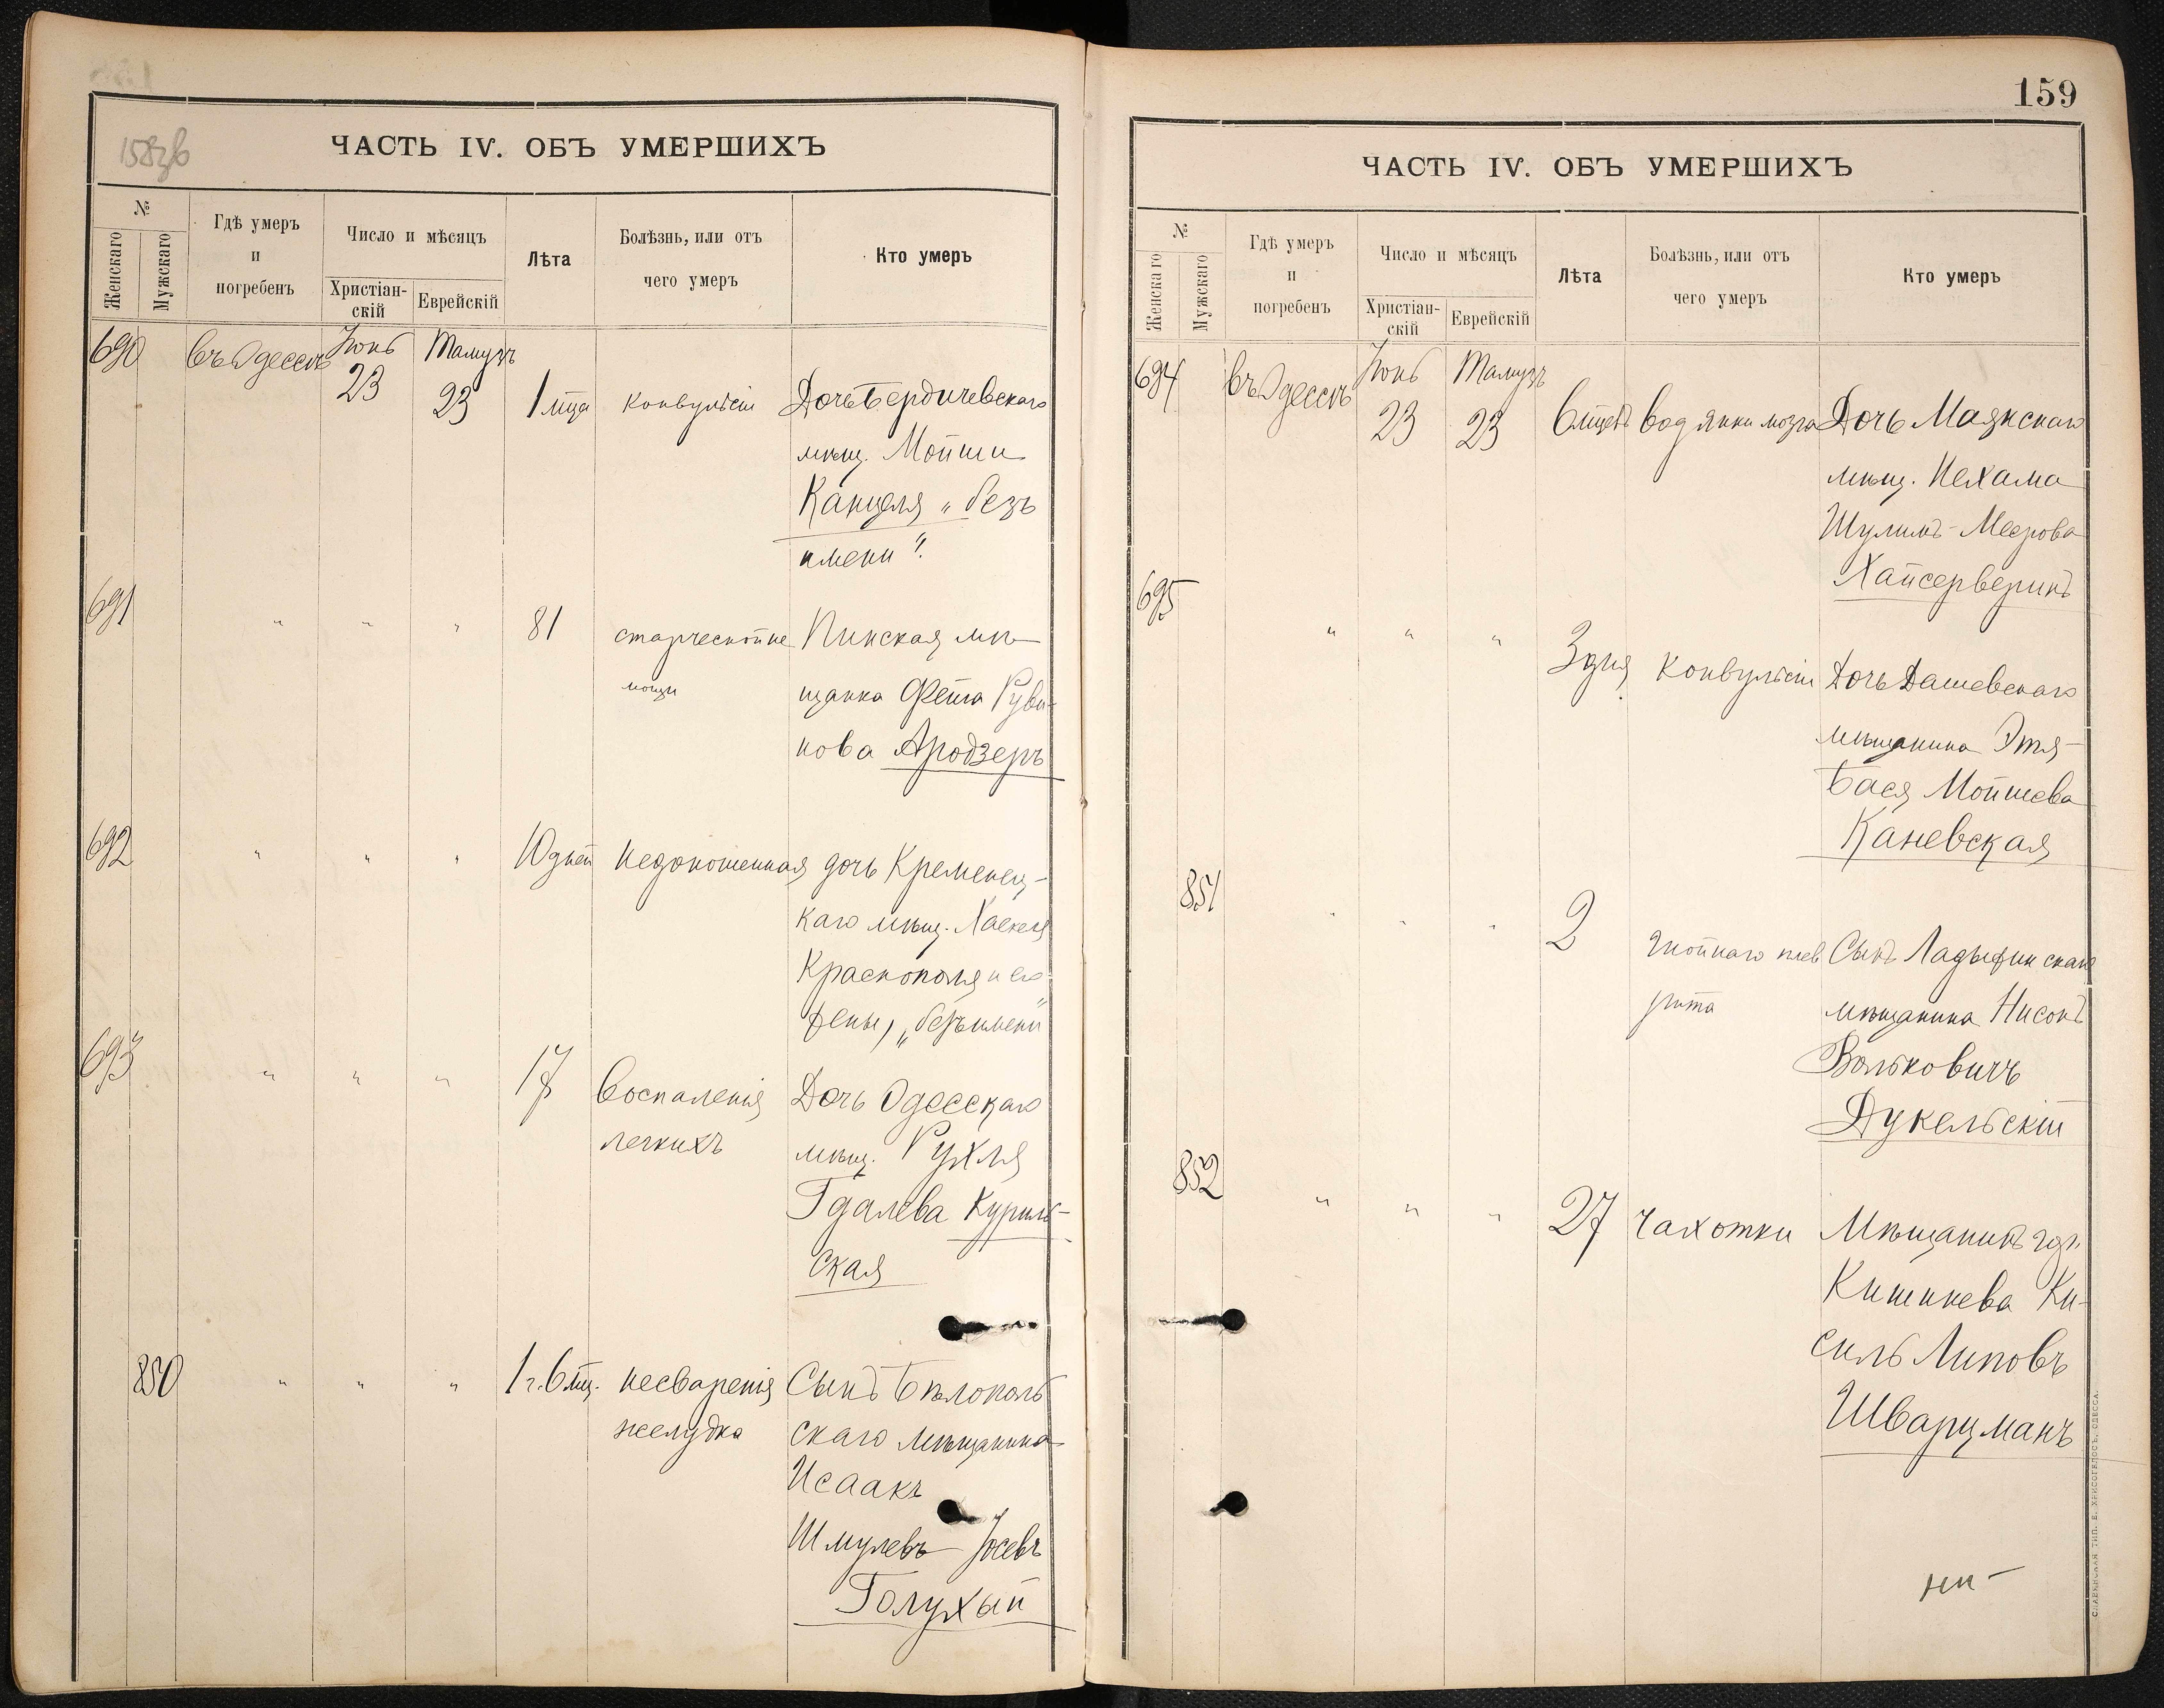 158зв
ЧАСТЬ IV. ОБЪ УМЕРШИХЪ
№
Женскаго
Мужскаго
Гдѣ умеръ
и
погребенъ
Число и мѣсяцъ
Христіан-
скій
Еврейскій
Лѣта
Болѣзнь, или отъ
чего умеръ
Кто умеръ
690 въ Одессѣ Іюнь Тамузъ
23 23 1 мца конвульсіи Дочь Бердичевскаго
мѣщ. Мойши
Канцеля „безъ
имени".
691 " " " 81 старческой не Пинская мѣ
мощи щанка Фейга Руви-
нова Яродзеръ
692 " " " 10 дней недоношенная дочь Кременец-
каго мѣщ. Хаскеля
Краснополя и его
жены, „безъ имени"
693 " " " 17 Воспаленія Дочь Одесскаго
легкихъ мѣщ. Рухля
Гдалева Куриль-
ская
850 " " " 1 г. 6 мц. несваренія Сынъ Бѣлополь
желудка скаго мѣщанина
Исаакъ
Шмулевъ Іосевъ
Голухый
159
ЧАСТЬ IV. ОБЪ УМЕРШИХЪ
№
Женскаго
Мужскаго
Гдѣ умеръ
и
погребенъ
Число и мѣсяцъ
Христіан-
скій
Еврейскій
Лѣта
Болѣзнь, или отъ
чего умеръ
Кто умеръ
694 въ Одессѣ Іюнь Тамузъ
23 23 6 мцевъ водянки мозга Дочь Маякскаго
мѣщ. Нехама
Шулимъ-Меерова
Хайсерверинъ
695 " " " 3 дня конвульсіи Дочь Дашевскаго
мѣщанина Этя-
Бася Мойшева
Каневская
851 " " " 2 гнойнаго плев Сынъ Ладыжинскаго
рита мѣщанина Нисонъ
Вольковичъ
Дукельскій
852 " " " 27 чахотки Мѣщанинъ гор.
Кишинева Ки-
силь Липовъ
Шварцманъ
СЛАВЯНСКАЯ ТИП. Е. ХРИСОГЕЛОСЪ, ОДЕССА.